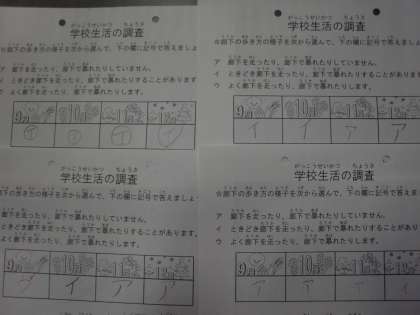 がっこうせいかつ ちょうさ
学校生活の調査
☆廊下の歩き方の様子を次から選んで、下の欄に記号で答えましょ
ア 廊下を走ったり、廊下で暴れたりしていません。
イ ときどき廊下を走ったり、廊下で暴れたりすることがあります
ウ よく廊下を走ったり、廊下で暴れたりします。
9月 10月 11月 12月
イ イ イ イ
がっこうせいかつ ちょうさ
学校生活の調査
☆廊下の歩き方の様子を次から選んで、下の欄に記号で答えま
ア 廊下を走ったり、廊下で暴れたりしていません。
イ ときどき廊下を走ったり、廊下で暴れたりすることがありま
ウ よく廊下を走ったり、廊下で暴れたりします。
9月 10月 11月 12月
イ イ ア ア
がっこうせいかつ ちょうさ
学校生活の調査
廊下の歩き方の様子を次から選んで、下の欄に記号で答えましょ
廊下を走ったり、廊下で暴れたりしていません。
ときどき廊下を走ったり、廊下で暴れたりすることがあります。
よく廊下を走ったり、廊下で暴れたりします。
9月 10月 11月 12月
イ ア イ
がっこうせいかつ ちょうさ
学校生活の調査
☆廊下の歩き方の様子を次から選んで、下の欄に記号で答えま
ア 廊下を走ったり、廊下で暴れたりしていません。
イ ときどき廊下を走ったり、廊下で暴れたりすることがありま
ウ よく廊下を走ったり、廊下で暴れたりします。
9月 10月 11月 12月
ア ア ア イ